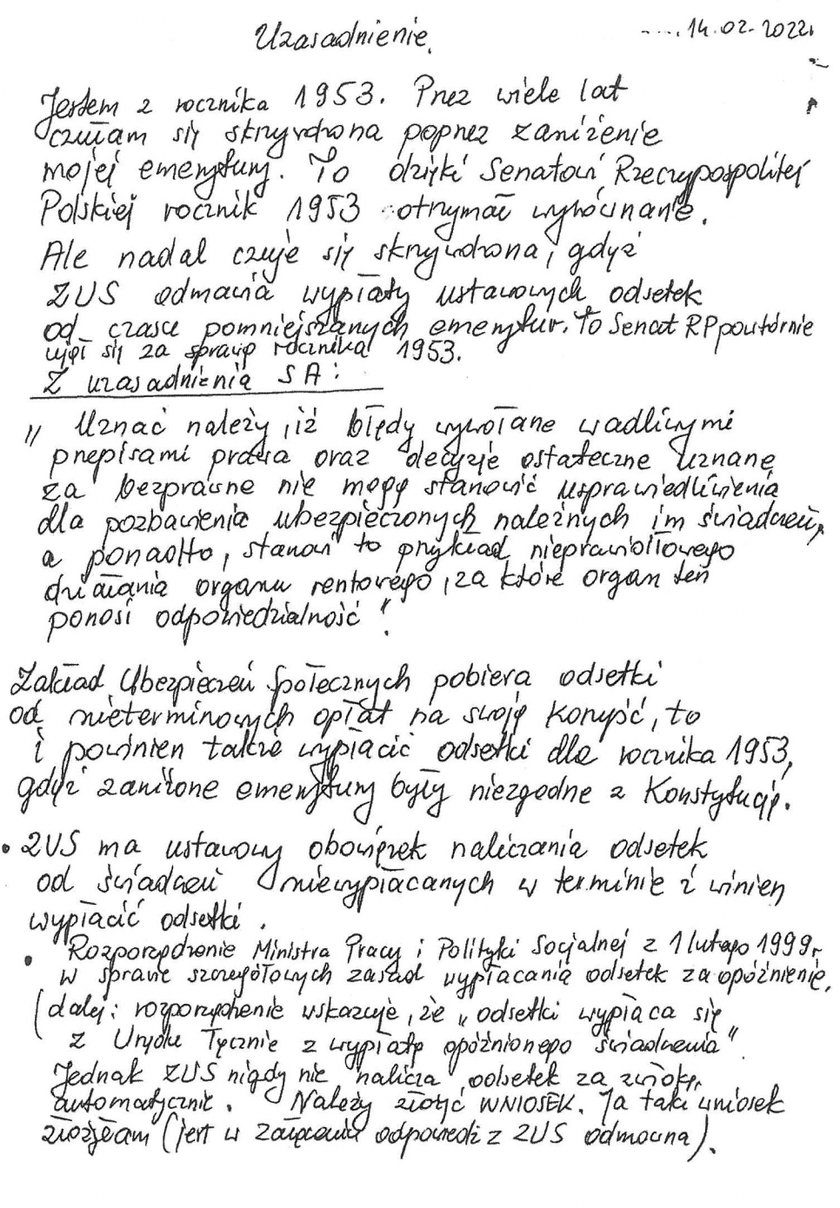 Uzasadnienie. ....14.02.2022r
Jestem z rocznika 1953. Przez wiele lat
czułam się skrzywdzona poprzez zaniżenie
mojej emerytury. To dzięki Senatowi Rzeczypospolitej
Polskiej rocznik 1953 otrzymał wyrównanie.
Ale nadal czuję się skrzywdzona, gdyż
ZUS odmawia wypłaty ustawowych odsetek
od czasu pomniejszanych emerytur. To Senat RP powtórnie
ujął się za sprawą rocznika 1953.
Z uzasadnienia SA:
„Uznać należy, iż błędy wywołane wadliwymi
przepisami prawa oraz decyzje ostateczne uznane
za bezprawne nie mogą stanowić usprawiedliwienia
dla pozbawienia ubezpieczonych należnych im świadczeń,
a ponadto, stanowi to przykład nieprawidłowego
działania organu rentowego, za które organ ten
ponosi odpowiedzialność".
Zakład Ubezpieczeń Społecznych pobiera odsetki
od nieterminowych opłat na swoją korzyść, to
i powinien także wypłacić odsetki dla rocznika 1953,
gdyż zaniżone emerytury były niezgodne z Konstytucją.
• ZUS ma ustawowy obowiązek naliczania odsetek
od świadczeń niewypłacanych w terminie i winien
wypłacić odsetki.
• Rozporządzenie Ministra Pracy i Polityki Socjalnej z 1 lutego 1999r.
w sprawie szczegółowych zasad wypłacania odsetek za opóźnienie,
(dalej: rozporządzenie wskazuje, że „odsetki wypłaca się
z Urzędu łącznie z wypłatą opóźnionego świadczenia"
Jednak ZUS nigdy nie nalicza odsetek za zwłokę
automatycznie. Należy złożyć WNIOSEK. Ja taki wniosek
złożyłam (jest w załączeniu odpowiedź z ZUS odmowna).